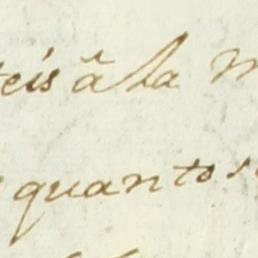 eis â la
quantos